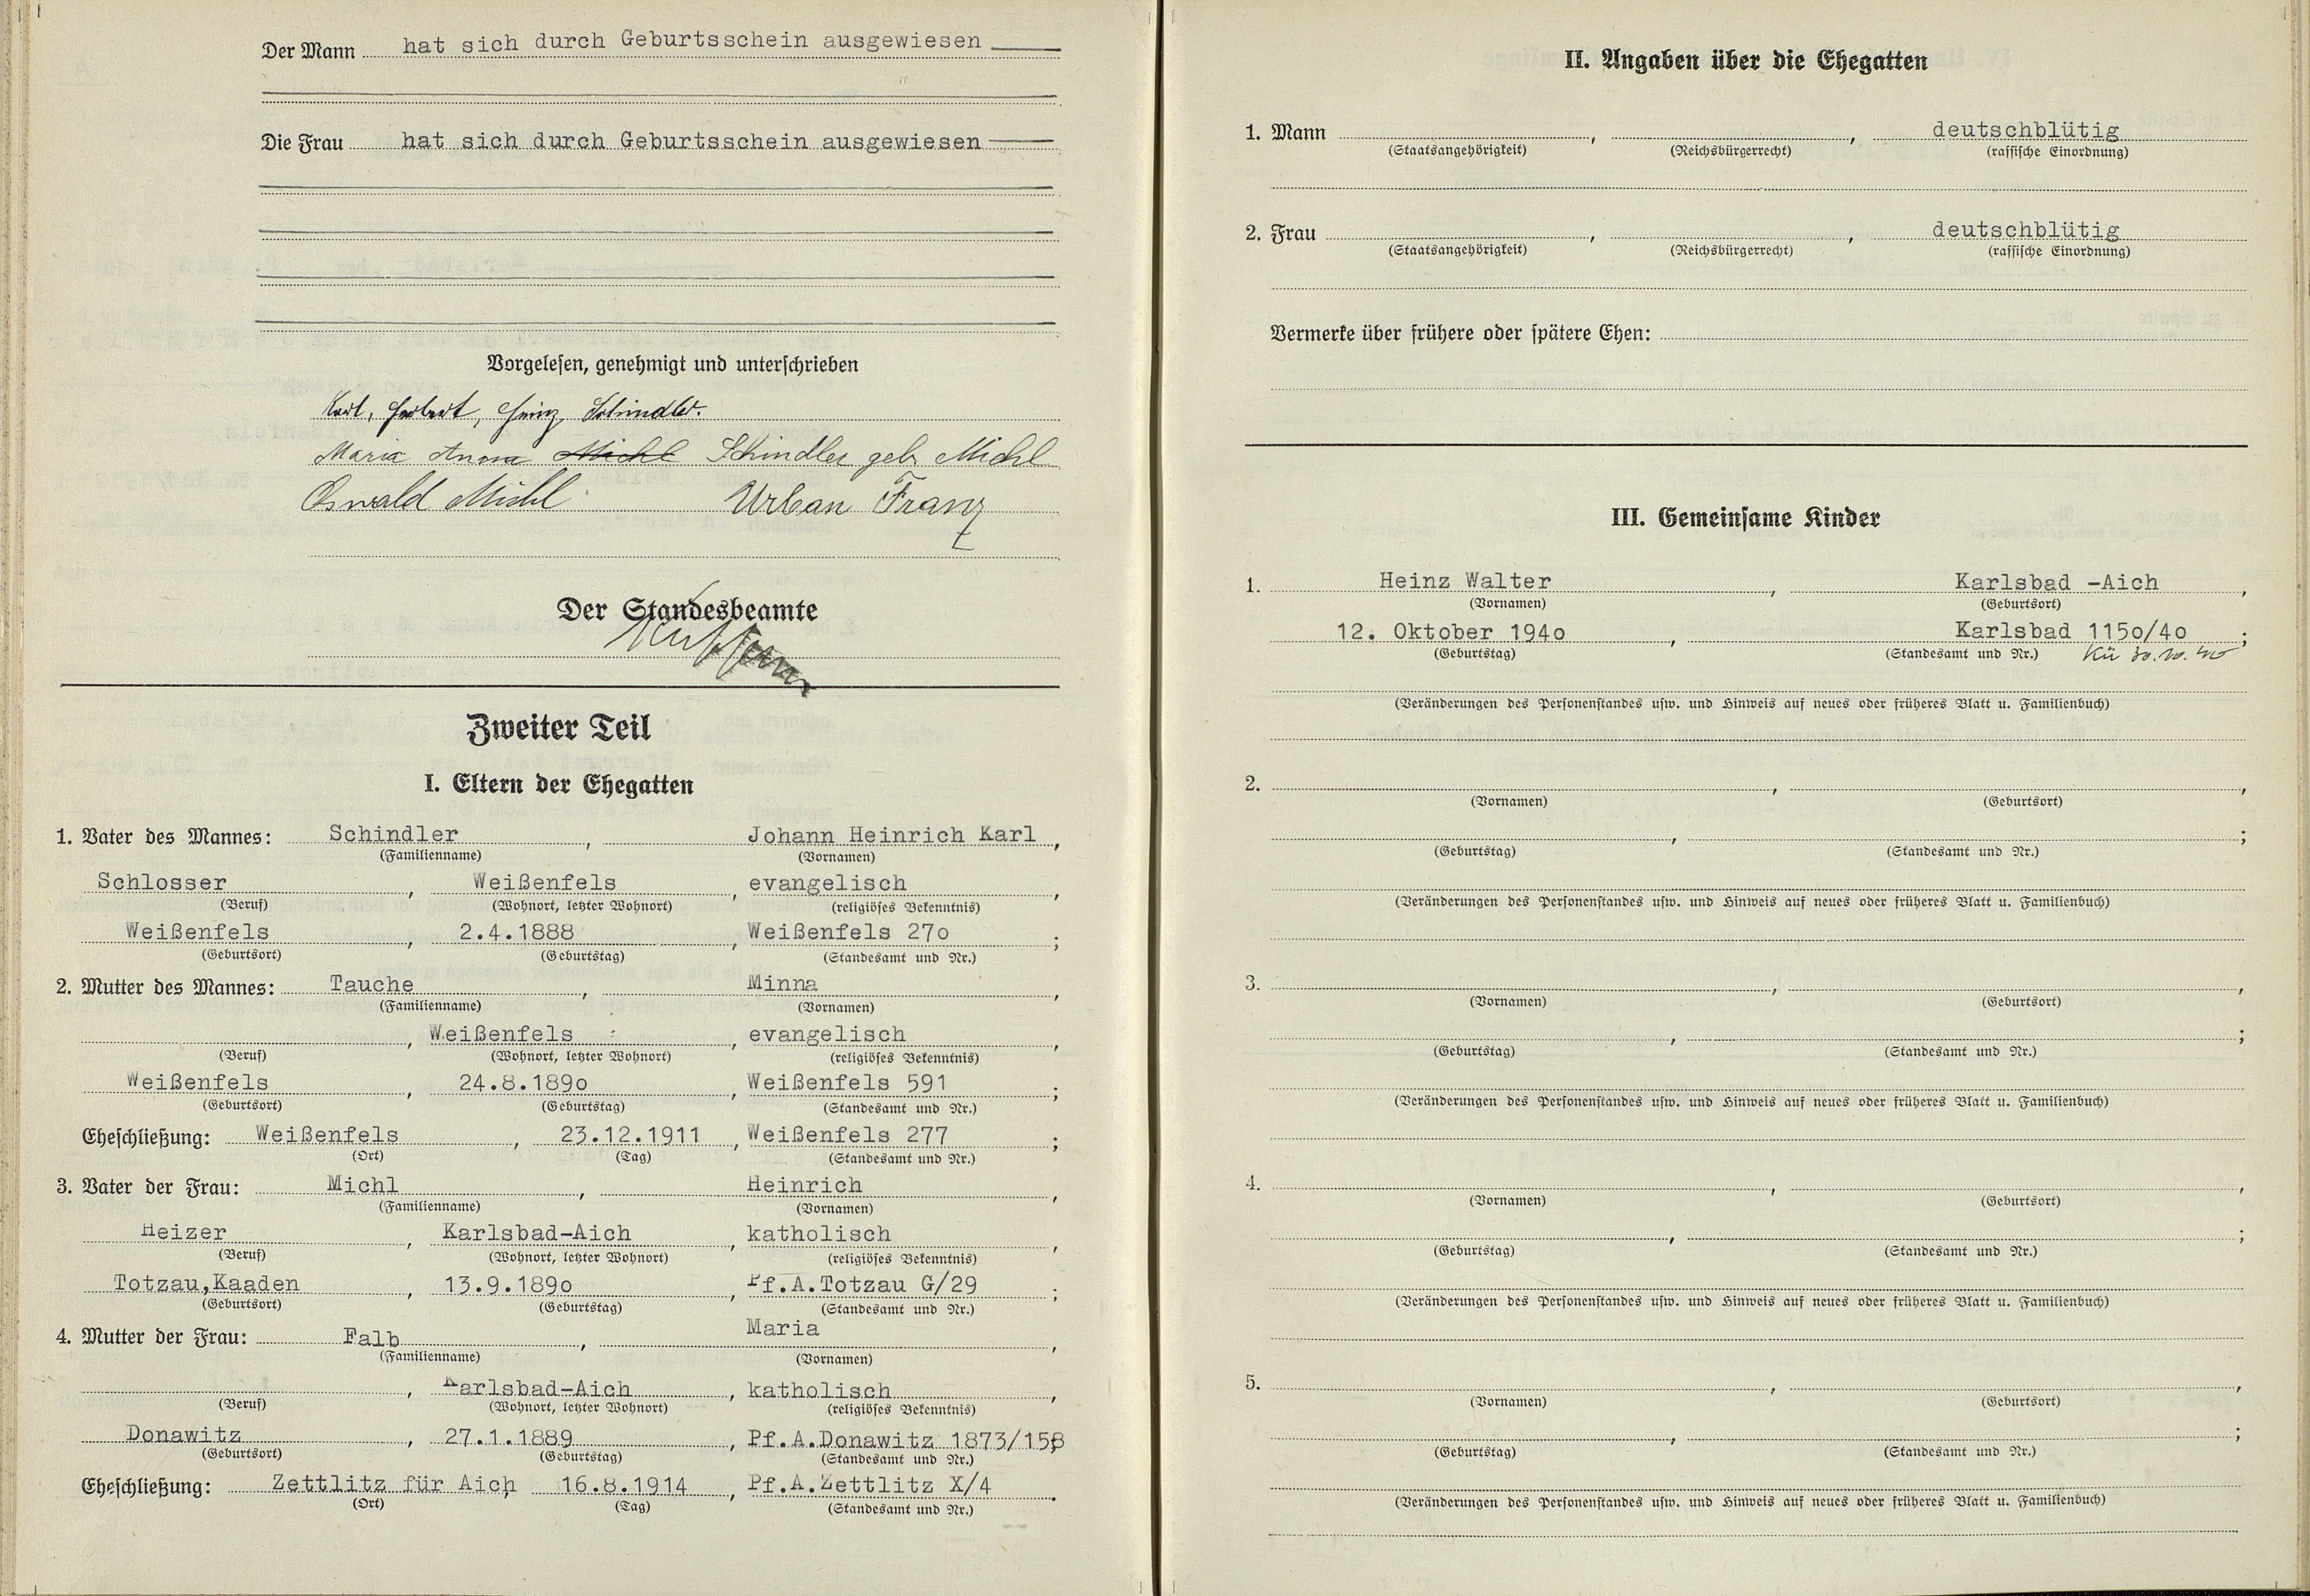 Der Mann hat sich durch Geburtsschein ausgewiesen
Die Frau hat sich durch Geburtsschein ausgewiesen
Vorgelesen, genehmigt und unterschrieben
Karl, Herbert, Heinz Schindler.
Maria Anna Michl Schindler geb. Michl
Oswald Michl Urban Franz
Der Standesbeamte
Zweiter Teil
I. Eltern der Ehegatten
1. Vater des Mannes: Schindler, Johann Heinrich Karl,
(Familienname) (Vornamen)
Schlosser, Weißenfels, evangelisch,
(Beruf) (Wohnort, letzter Wohnort) (religiöses Bekenntnis)
Weißenfels, 2.4.1888, Weißenfels 27o;
(Geburtsort) (Geburtstag) (Standesamt und Nr.)
2. Mutter des Mannes: Tauche, Minna,
(Familienname) (Vornamen)
, Weißenfels, evangelisch,
(Beruf) (Wohnort, letzter Wohnort) (religiöses Bekenntnis)
Weißenfels, 24.8.189o, Weißenfels 591;
(Geburtsort) (Geburtstag) (Standesamt und Nr.)
Eheschließung: Weißenfels, 23.12.1911, Weißenfels 277;
(Ort) (Tag) (Standesamt und Nr.)
3. Vater der Frau: Michl, Heinrich,
(Familienname) (Vornamen)
Heizer, Karlsbad-Aich, katholisch,
(Beruf) (Wohnort, letzter Wohnort) (religiöses Bekenntnis)
Totzau,Kaaden, 13.9.189o, Pf.A.Totzau G/29;
(Geburtsort) (Geburtstag) (Standesamt und Nr.)
4. Mutter der Frau: Falb, Maria,
(Familienname) (Vornamen)
, Karlsbad-Aich, katholisch,
(Beruf) (Wohnort, letzter Wohnort) (religiöses Bekenntnis)
Donawitz, 27.1.1889, Pf.A.Donawitz 1873/158;
(Geburtsort) (Geburtstag) (Standesamt und Nr.)
Eheschließung: Zettlitz für Aich, 16.8.1914, Pf.A.Zettlitz X/4.
(Ort) (Tag) (Standesamt und Nr.)
II. Angaben über die Ehegatten
1. Mann , , deutschblütig
(Staatsangehörigkeit) (Reichsbürgerrecht) (rassische Einordnung)
2. Frau , , deutschblütig
(Staatsangehörigkeit) (Reichsbürgerrecht) (rassische Einordnung)
Vermerke über frühere oder spätere Ehen:
III. Gemeinsame Kinder
1. Heinz Walter, Karlsbad -Aich,
(Vornamen) (Geburtsort)
12. Oktober 194o, Karlsbad 115o/4o;
(Geburtstag) (Standesamt und Nr.) Kü 30.10.40
(Veränderungen des Personenstandes usw. und Hinweis auf neues oder früheres Blatt u. Familienbuch)
2. , ,
(Vornamen) (Geburtsort)
, ;
(Geburtstag) (Standesamt und Nr.)
(Veränderungen des Personenstandes usw. und Hinweis auf neues oder früheres Blatt u. Familienbuch)
3. , ,
(Vornamen) (Geburtsort)
, ;
(Geburtstag) (Standesamt und Nr.)
(Veränderungen des Personenstandes usw. und Hinweis auf neues oder früheres Blatt u. Familienbuch)
4. , ,
(Vornamen) (Geburtsort)
, ;
(Geburtstag) (Standesamt und Nr.)
(Veränderungen des Personenstandes usw. und Hinweis auf neues oder früheres Blatt u. Familienbuch)
5. , ,
(Vornamen) (Geburtsort)
, ;
(Geburtstag) (Standesamt und Nr.)
(Veränderungen des Personenstandes usw. und Hinweis auf neues oder früheres Blatt u. Familienbuch)